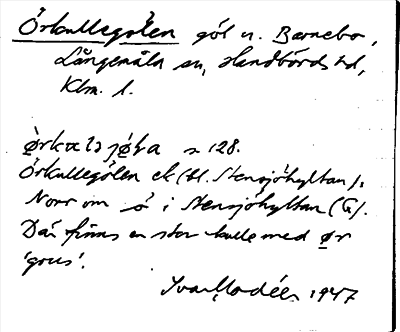 Örkullegölen göl n. Barnebo,
Långemåla sn, Handbörds hd,
Klm. l.
s 128.
Örkullegölen ek (bl. Stensjöhyltan):
Norr om sö i Stensjöhyltan (G).
Där finns en stor kulle med ør
'grus'.
Ivar Modéer 1947